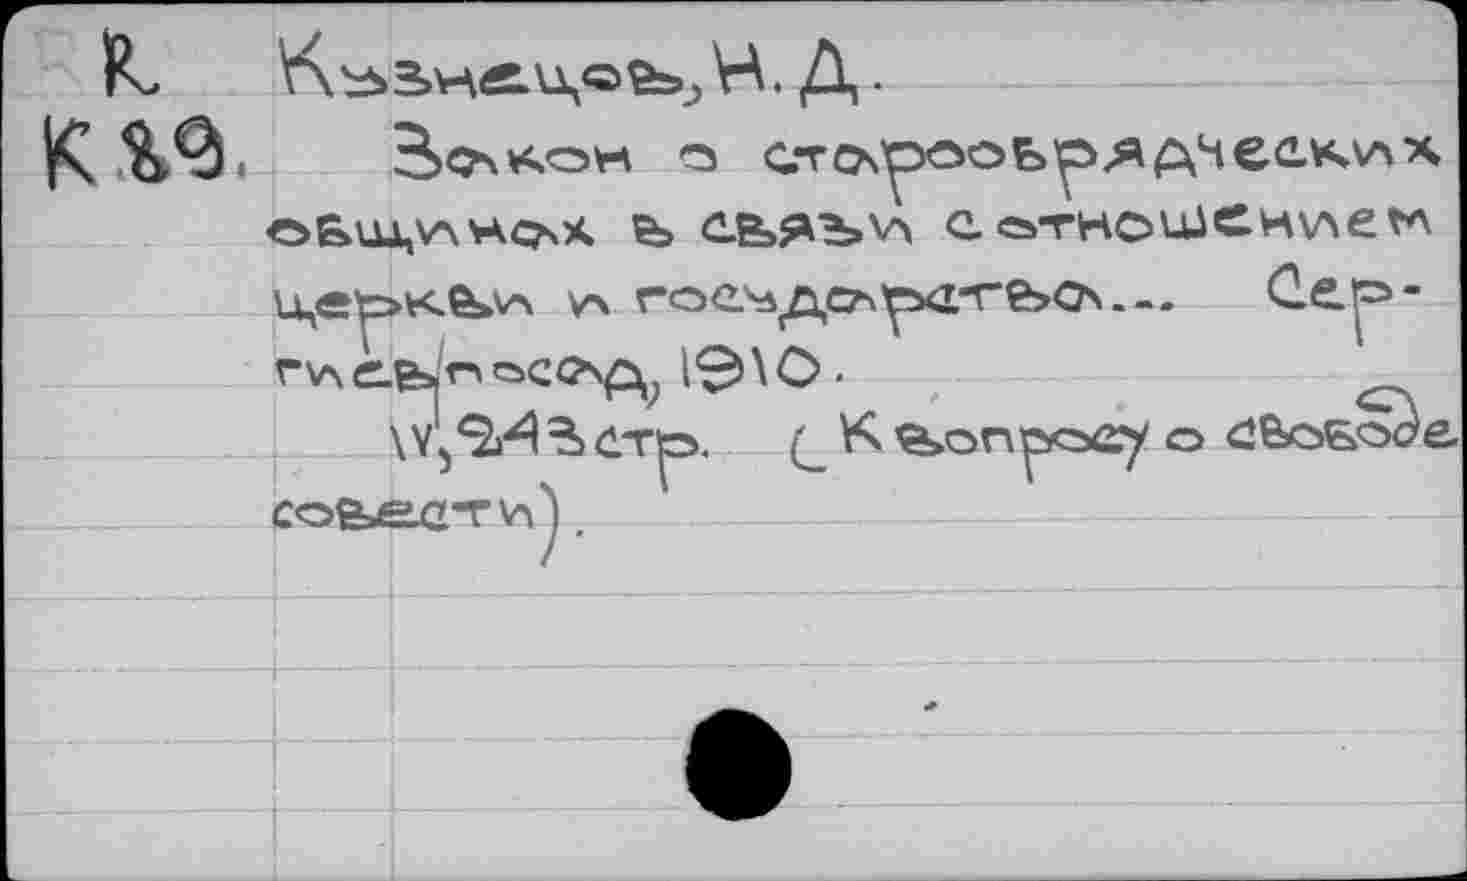 К. Кузнецов, Н. Д.
К 89. Закон о старообрядческих
общинах в связи с отношением
церкви и государства... Сер-
гиев посад, 1910.
IV, 243 стр. (К вопросу о свободе
совести).